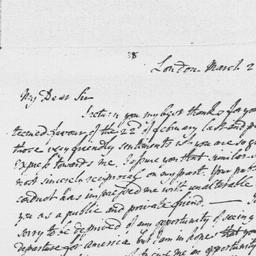 London March 2
My Dear Sir
I return you my best thanks for you
teemed favour of the 22d of February last and
those very friendly sentiments which you are so g
Express towards me. I assure you that similar
most sincerely reciprocal on my part. Your
conduct has impressed me with unalterable
you as a public and private friend. —
sorry to be deprived of any opportunity of seeing
departure for America but I am in hopes that you
an opportunity